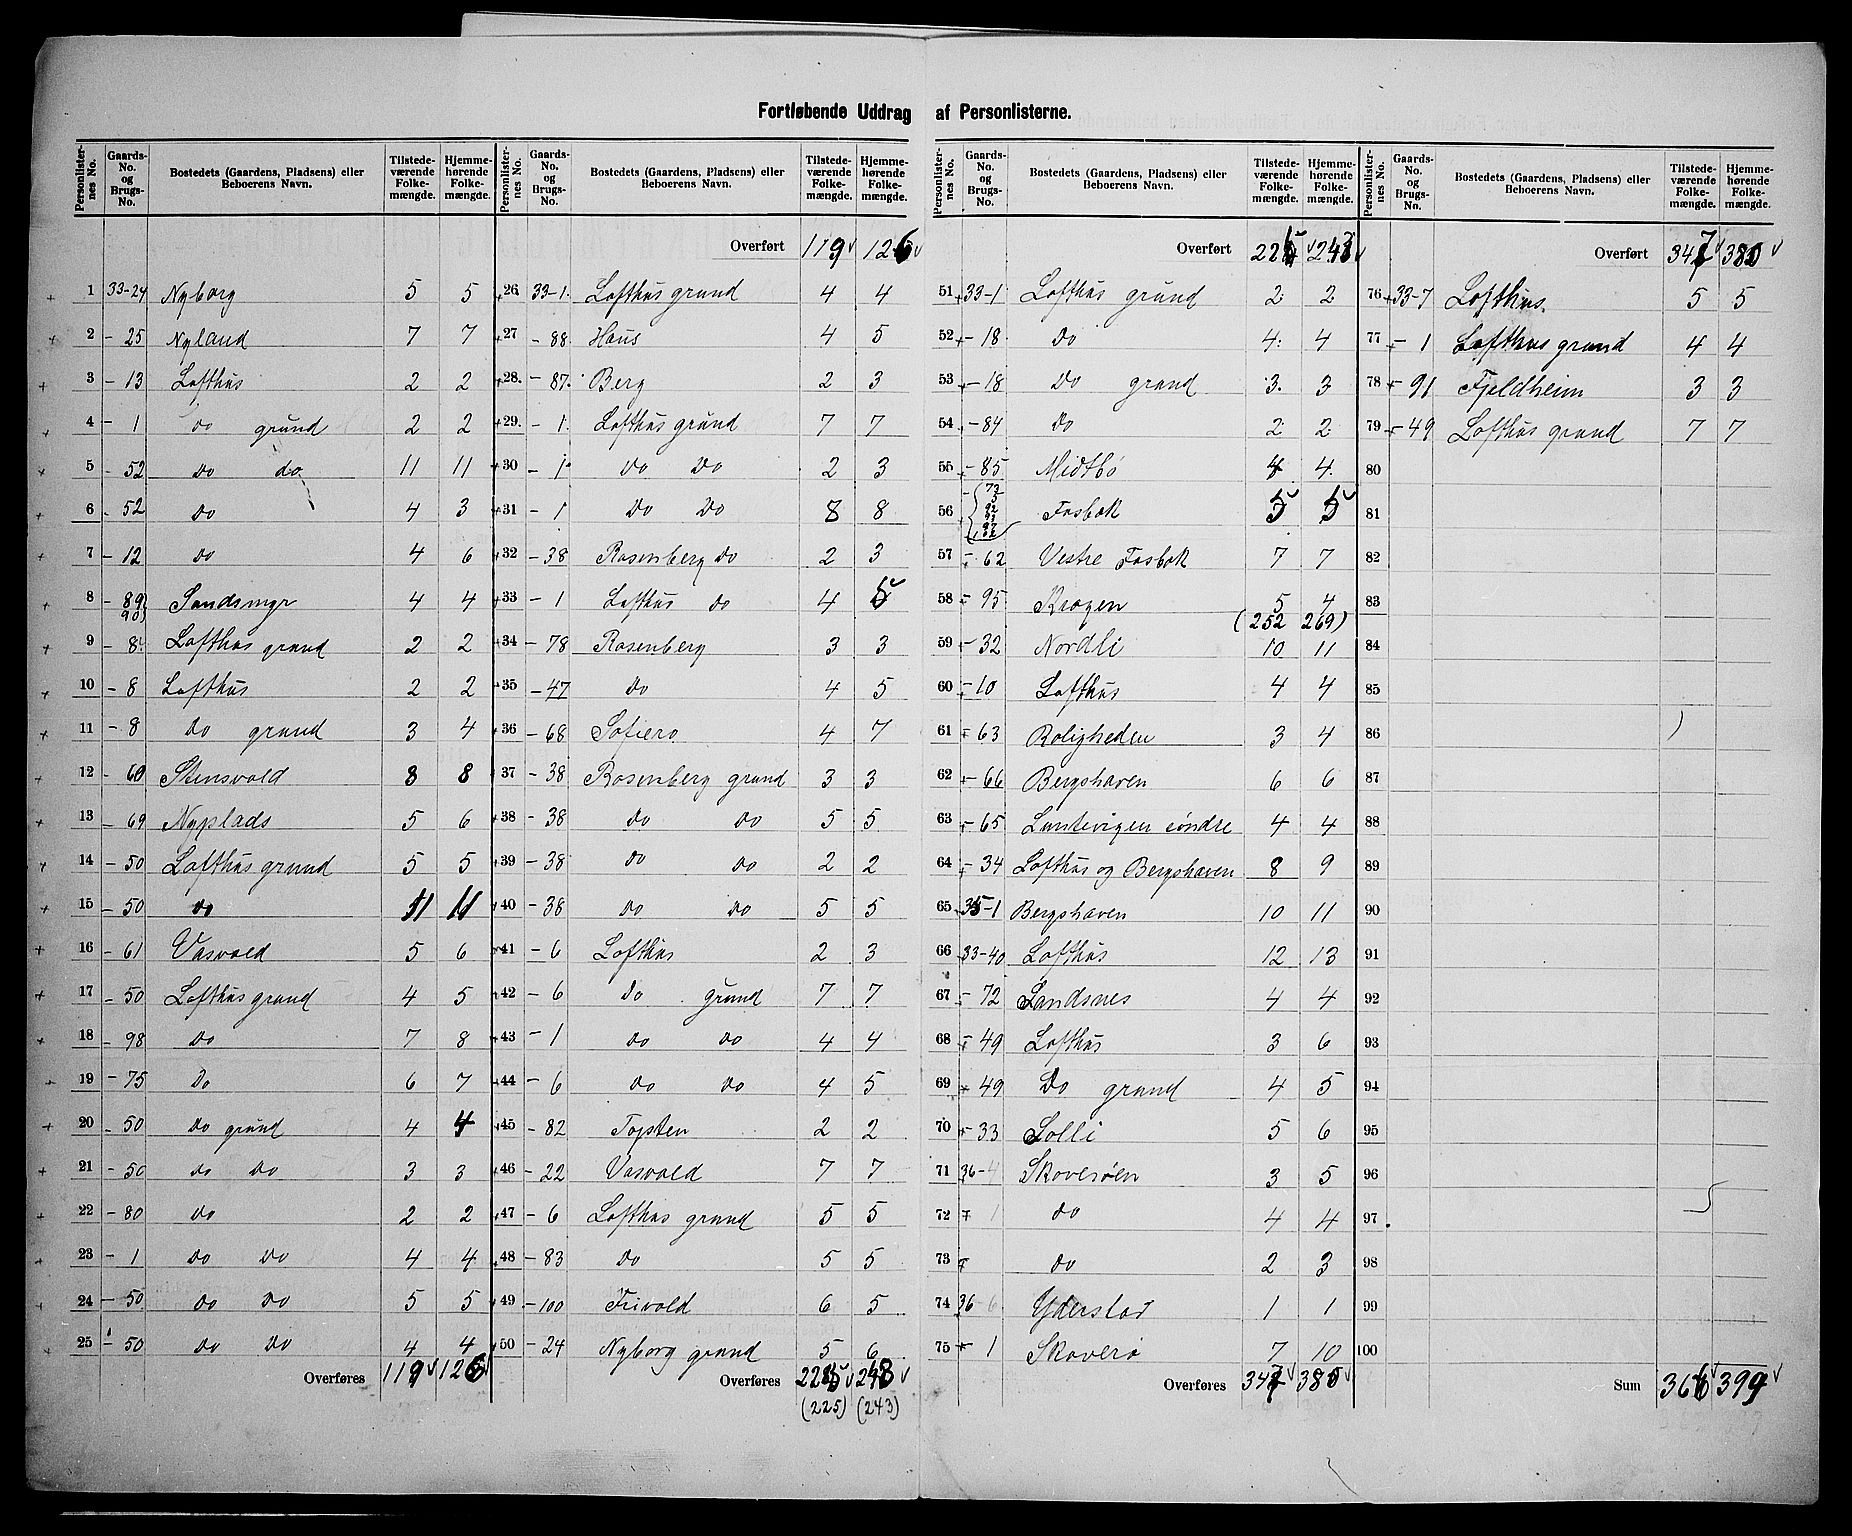 Fortløbende Uddrag af Personlisterne.
Personlister-nes No. | Gaards-No. og Brugs-No. | Bostedets (Gaardens, Pladsens) eller Beboerens Navn. | Tilstede-værende Folke-mængde. | Hjemme-hørende Folke-mængde.
Overført 119 126
1 33-24 Nyborg 5 5
2 - 25 Nyland 7 7
3 - 13 Lofthus 2 2
4 - 1 do grund 2 2
5 - 52 do do 11 11
6 - 52 do 4 3
7 - 12 do 4 6
8 - 89, 90) Sandsmyr 4 4
9 - 8 Lofthus grund 2 2
10 - 8 Lofthus 2 2
11 - 8 Do grund 3 4
12 - 60 Stensvold 8 8
13 - 69 Nyplads 5 6
14 - 50 Lofthus grund 5 5
15 - 50 do 11 11
16 - 61 Vasvold 5 6
17 - 50 Lofthus grund 4 5
18 - 98 do 7 8
19 - 75 Do 6 7
20 - 50 do grund 4 4
21 - 50 do do 3 3
22 - 80 do 2 2
23 - 1 do do 4 4
24 - 50 do do 5 5
25 - 50 do do 4 4
Overføres 119 126
26 33-1 Lofthus grund 4 4
27 - 88 Haus 4 5
28 - 87 Berg 2 3
29 - 1 Lofthus grund 7 7
30 - 1 do do 2 3
31 - 1 do do 8 8
32 - 38 Rosenberg do 2 3
33 - 1 Lofthus do 4 5
34 - 78 Rosenberg 3 3
35 - 47 do 4 5
36 - 68 Sofiero 4 7
37 - 38 Rosenberg grund 3 3
38 - 38 do do 5 5
39 - 38 do do 2 2
40 - 38 do do 5 5
41 - 6 Lofthus 2 3
42 - 6 do grund 7 7
43 - 1 do do 4 4
44 - 6 do do 4 5
45 - 82 Topsten 2 2
46 - 22 Vasvold 7 7
47 - 6 Lofthus grund 5 5
48 - 83 do 5 5
49 - 100 Frivold 6 5
50 - 24 Nyborg grund 5 6
Overføres
(225) (243)
Personlister-nes No. | Gaards-No. og Brugs-No. | Bostedets (Gaardens, Pladsens) eller Beboerens Navn. | Tilstede-værende Folke-mængde. | Hjemme-hørende Folke-mængde.
Overført
51 33-1 Lofthus grund 2 2
52 - 18 do 4 4
53 - 18 do grund 3 3
54 - 84 do 2 2
55 - 85 Midtbø 4 4
56 Fosbæk 5 5
57 - 62 Vestre Fosbæk 7 7
58 - 95 Krogen 5 4
(252 269)
59 - 32 Nordli 10 11
60 - 10 Lofthus 4 4
61 - 63 Roligheden 3 4
62 - 66 Bergshaven 6 6
63 - 65 Luntevigen søndre 4 4
64 - 34 Lofthus og Bergshaven 8 9
65 35-1 Bergshaven 10 11
66 33-40 Lofthus 12 13
67 - 72 Sandsnes 4 4
68 - 49 Lofthus 3 6
69 - 49 Do grund 4 5
70 - 33 Solli 5 6
71 36-4 Skoverøen 3 5
72 - 1 do 4 4
73 do 2 3
74 36-6 Yderstad 1 1
75 - 1 Skoverø 7 10
Overføres 347 380
Overført 347 380
76 33-7 Lofthus 5 5
77 - 1 Lofthus grund 4 4
78 - 91 Fjeldheim 3 3
79 - 49 Lofthus grund 7 7
80
81
82
83
84
85
86
87
88
89
90
91
92
93
94
95
96
97
98
99
100
Sum 366 399